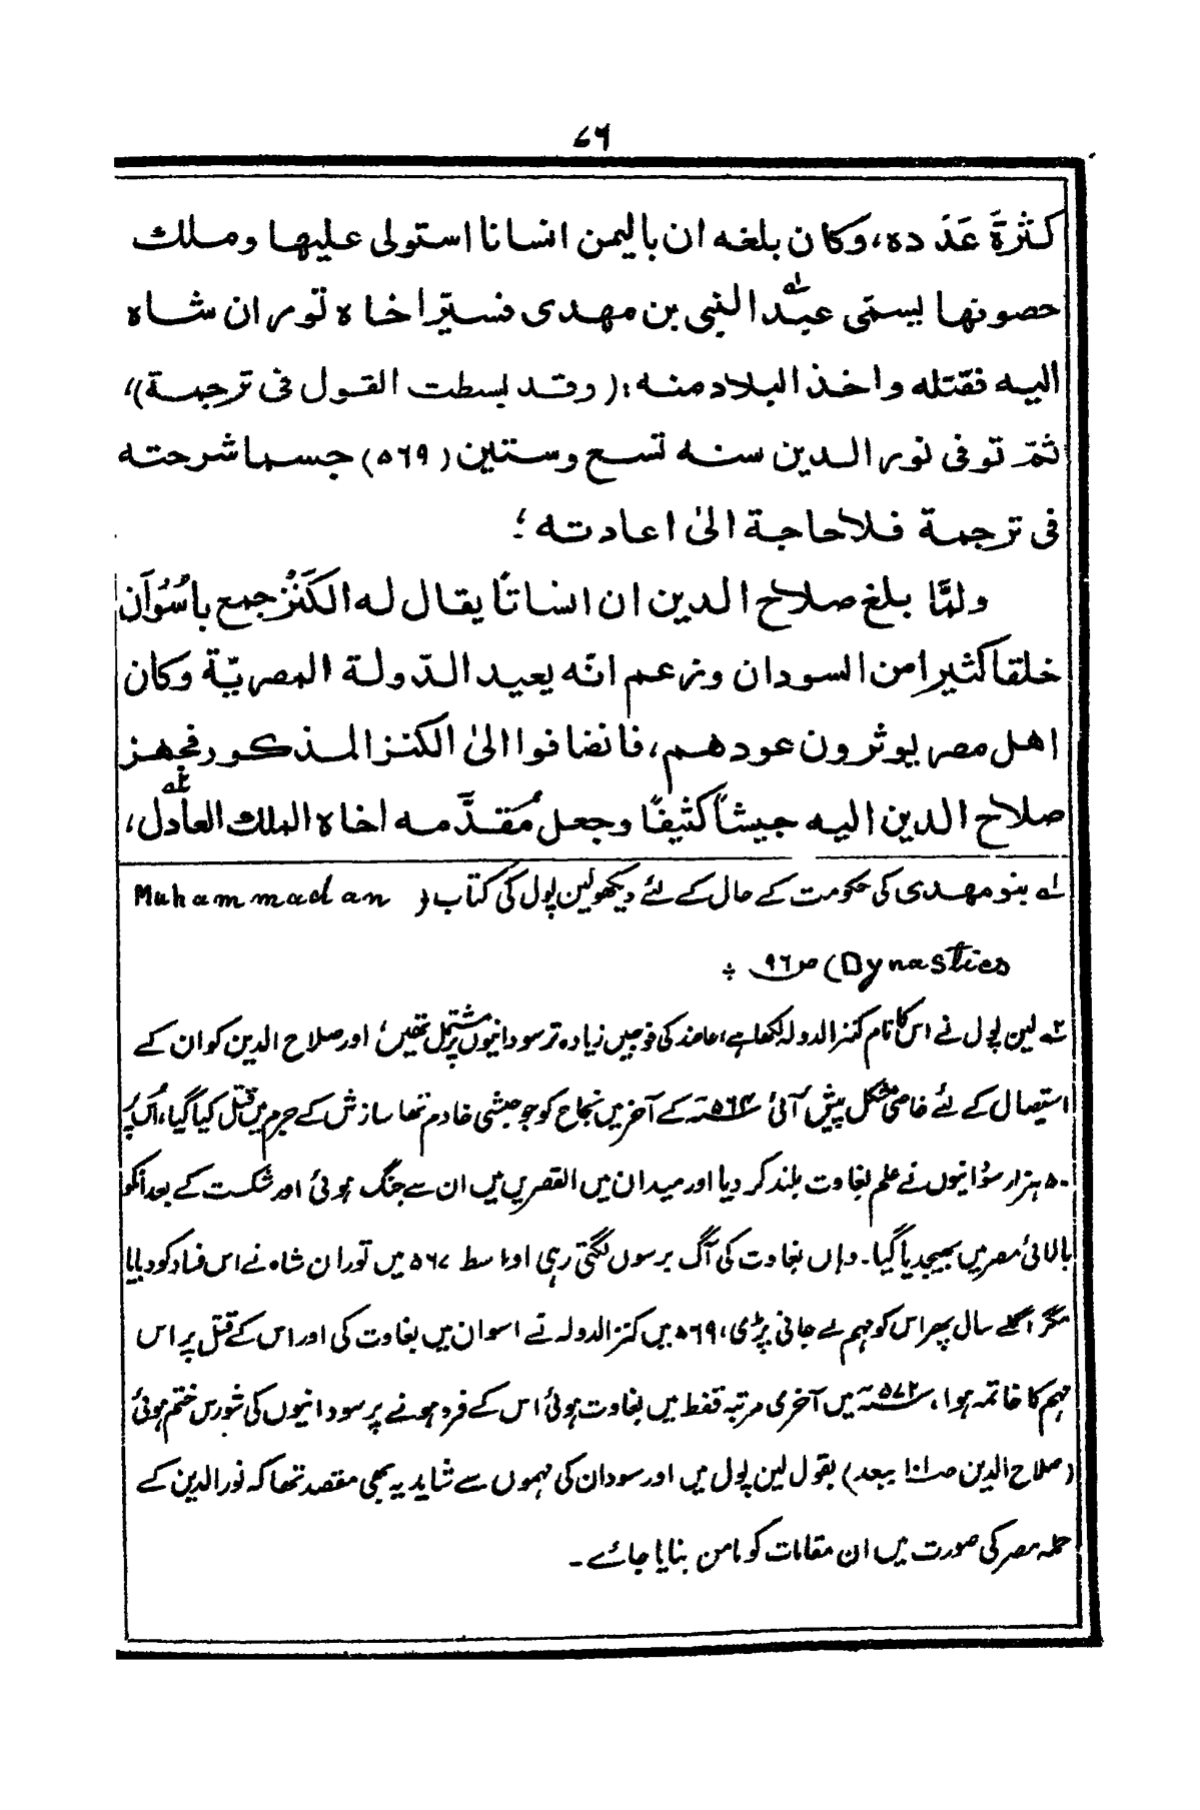 ۷۶
كثرةَ عَدَده، وكان بلغه ان باليمن انسانا استولى عليها وملك
حصونها يسمّى عبد النبى بن مهدى فسيّر اخاه توران شاه
اليه فقتله واخذ البلاد منه؛ (وقد بسطت القول فى ترجمة)،
ثمّ توفى نور الدين سنه تسع وستين (۵۶۹) حسما شرحته
فى ترجمة فلا حاجة الىٰ اعادته؛
ولمّا بلغ صلاح الدين ان انسانًا يقال له الكَنْز جمع باسُوَان
خلقا كثيرا من السودان وزعم انّه يعيد الدّولة المصريّة وكان
اهل مصر يوثرون عودهم، فانضافوا الىٰ الكنز المذكور فجهز
صلاح الدين اليه جيشًا كثيفًا وجعل مُقدَّمه اخاه الملك العادل،
لہ بنو مہدی کی حکومت کے حال کے لئے دیکھو لین پول کی کتاب (Muhammadan
Dynasties) ص ۹۶ ؞
ٹہ لین پول نے اس کا نام کنز الدولہ لکھا ہے، عاضد کی فوجیں زیادہ تر سودانیوں پر مشتمل تھیں؛ اور صلاح الدین کو ان کے
استیصال کے لئے خاصی مشکل پیش آئی ۵۶۴ھ کے آخر میں نجاح کو جو حبشی خادم تھا سازش کے جرم میں قتل کیا گیا، اُس پر
۵۰ ہزار سوڈانیوں نے علم بغاوت بلند کر دیا اور میدان میں القصرین میں ان سے جنگ ہوئی اور شکست کے بعد انکو
بالائی مصر میں بھیجدیا گیا۔ وہاں بغاوت کی آگ برسوں لگتی رہی اواسط ۵۶۷ میں توران شاہ نے اس فساد کو دبایا
مگر اگلے سال پھر اس کو مہم لے جانی پڑی، ۵۶۹ میں کنز الدولہ نے اسوان میں بغاوت کی اور اس کے قتل پر اس
مہم کا خاتمہ ہوا، ۵۷۲ھ میں آخری مرتبہ قفط میں بغاوت ہوئی اس کے فرو ہونے پر سودانیوں کی شورش ختم ہوئی
(صلاح الدین صـ۱۰۱ ببعد) بقول لین پول میں اور سودان کی مہموں سے شاید یہ بھی مقصد تھا کہ نور الدین کے
حملہ مصر کی صورت میں ان مقامات کو مامن بنایا جائے۔